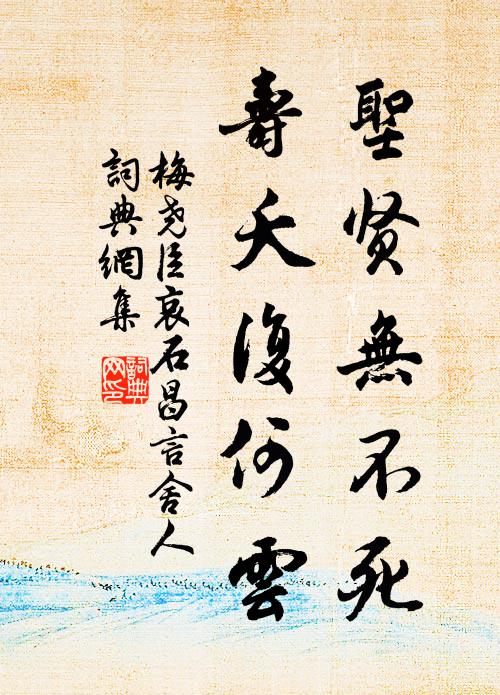 聖贤無不死
壽夭復何雲
梅尧臣哀石昌言舍人
詞典網集
詞典网印